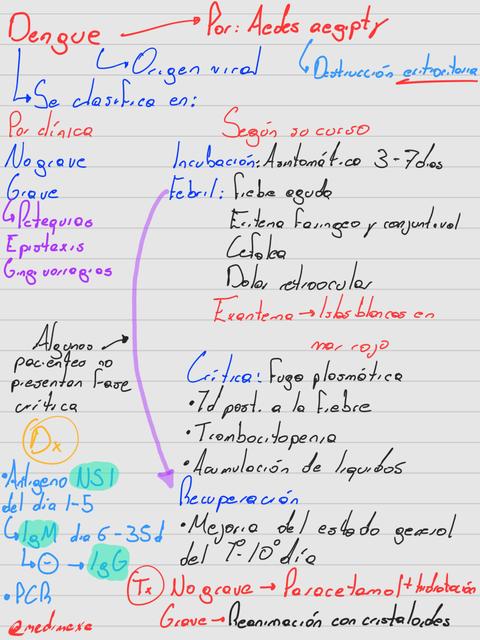 Dengue → Por: Aedes aegipty
↳ Origen viral
↳ Destrucción eritrocitaria
↳ Se clasifica en:
Por clínica
No grave
Grave
↳ Petequias
Epistaxis
Gingivorragias
Según su curso
Incubación: Asintomático 3-7 dias
Febril: Fiebre aguda
Eritema faringeo y conjuntival
Cefalea
Dolor retroocular
Exantema → Islas blancas en
mar rojo
Algunos →
pacientes no
presentan fase
crítica
Crítica: Fuga plasmática
• 7d post. a la fiebre
• Trombocitopenia
• Acumulación de liquidos
Recuperación
• Mejoria del estado general
del 7°-10° día
Dx
• Antigeno NS1
del dia 1-5
↳ IgM dia 6-35d
↳ ⊖ → IgG
• PCR
Tx No grave → Paracetamol + hidratación
Grave → Reanimación con cristaloides
@medimexa